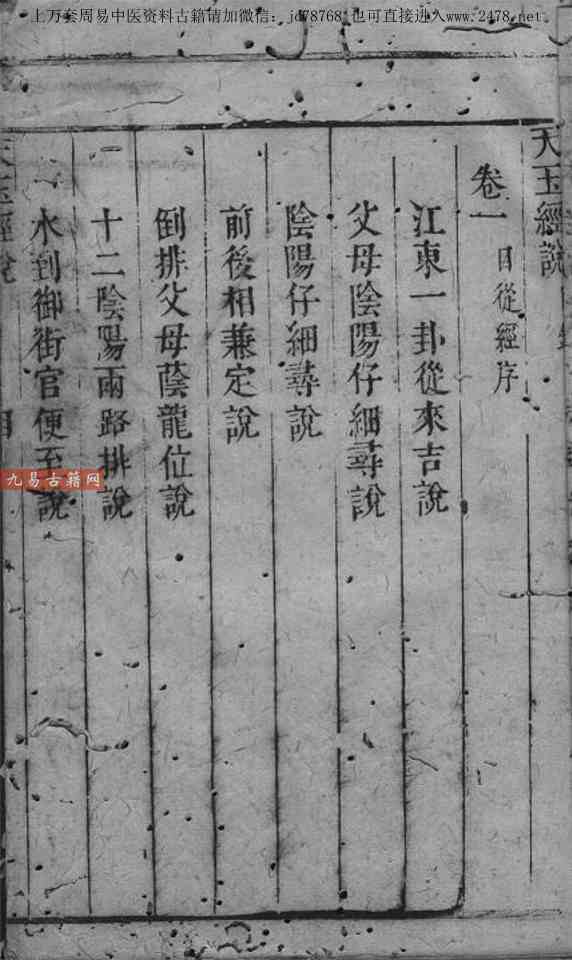 上万套周易中医资料古籍请加微信：jd78768 也可直接进入www.2478.net
天玉經說
卷一 目從經序
江東一卦從來吉說
父母陰陽仔細尋說
陰陽仔細尋說
前後相兼定說
倒排父母蔭龍位說
十二陰陽兩路排說
水到御街官便至說
天玉經說
九易古籍网